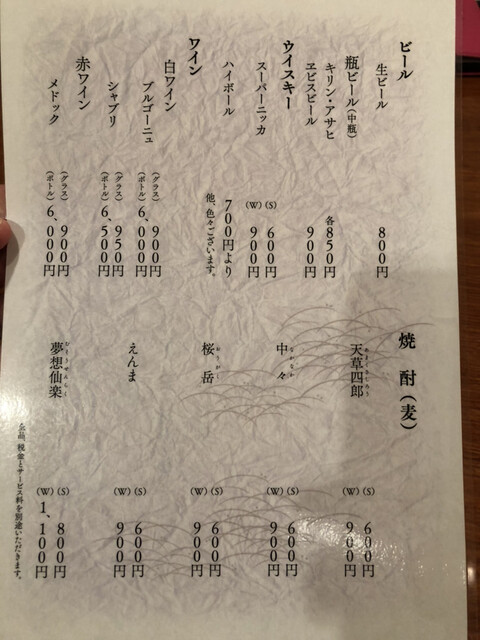 ビール
生ビール 800円
瓶ビール(中瓶)
キリン・アサヒ 各850円
ヱビスビール 900円
ウイスキー
スーパーニッカ (S) 600円
(W) 900円
ハイボール 700円より
他、色々ございます。
ワイン
白ワイン
ブルゴーニュ (グラス) 900円
(ボトル) 6、000円
シャブリ (グラス) 950円
(ボトル) 6、500円
赤ワイン
メドック (グラス) 900円
(ボトル) 6、000円
焼酎(麦)
天草四郎 (S) 600円
(W) 900円
中々 (S) 600円
(W) 900円
桜岳 (S) 600円
(W) 900円
えんま (S) 600円
(W) 900円
夢想仙楽 (S) 800円
(W) 1、100円
税金とサービス料を別途いただきます。